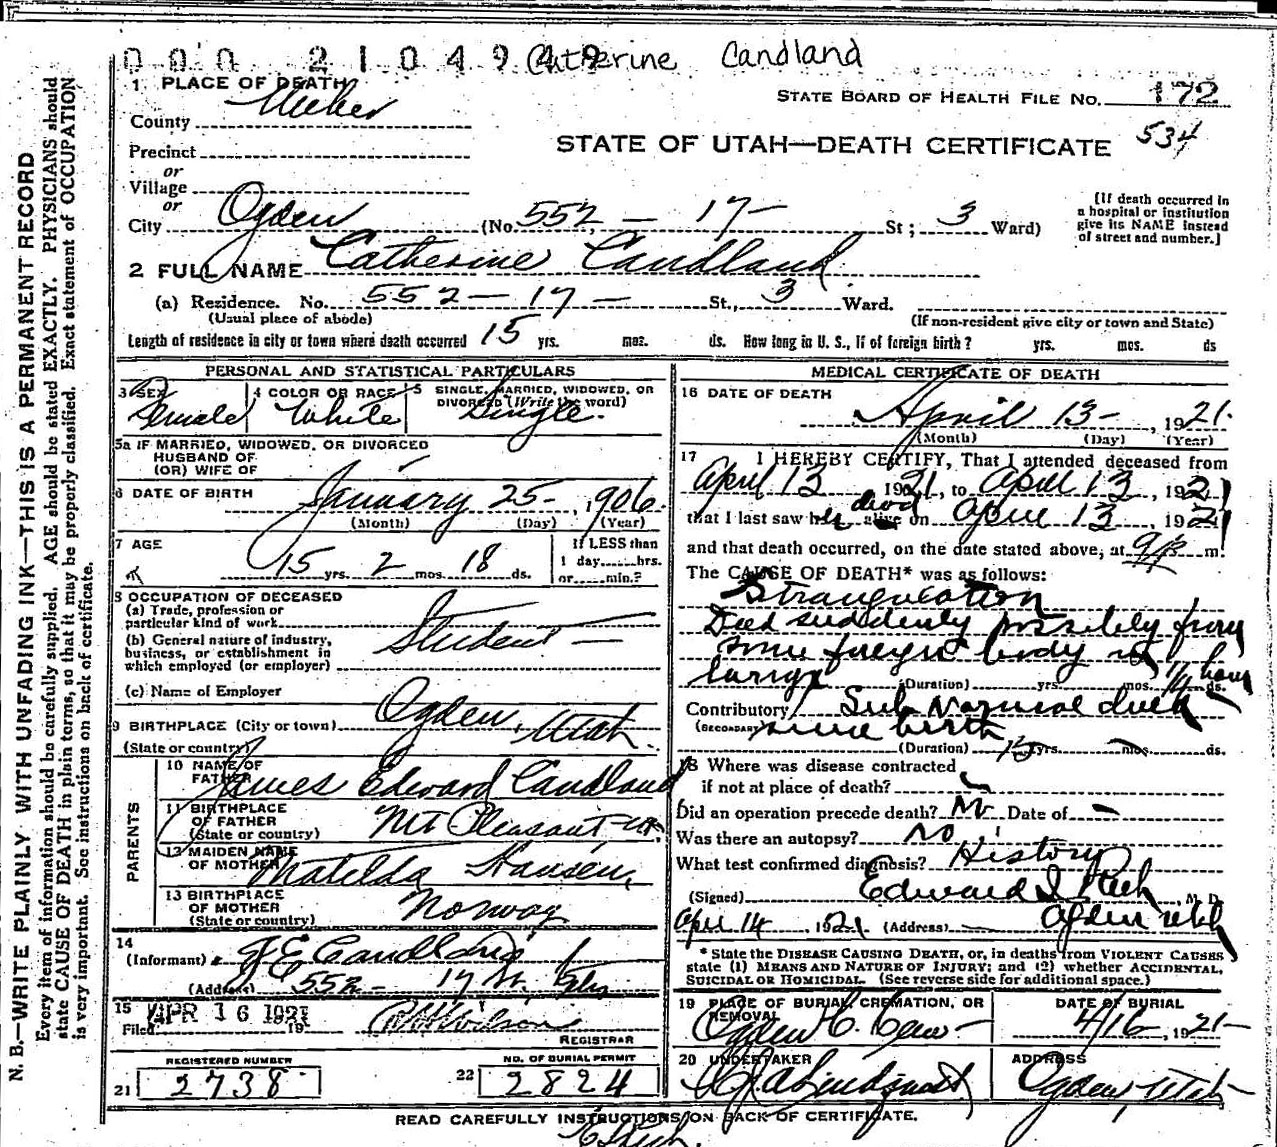 000 2104949 Catherine Candland
1 PLACE OF DEATH
STATE BOARD OF HEALTH FILE NO. 172
County Weber
STATE OF UTAH—DEATH CERTIFICATE 534
Precinct
or
Village
or
City Ogden (No. 552 - 17 - St; 3 Ward)
[If death occurred in a hospital or institution give its NAME instead of street and number.]
2 FULL NAME Catherine Candland
(a) Residence. No. 552 - 17 - St., 3 Ward.
(Usual place of abode) (If non-resident give city or town and State)
Length of residence in city or town where death occurred 15 yrs. mos. ds. How long in U. S., if of foreign birth? yrs. mos. ds
PERSONAL AND STATISTICAL PARTICULARS
3 SEX Female
4 COLOR OR RACE White
5 SINGLE, MARRIED, WIDOWED, OR DIVORCED (Write the word) Single.
5a IF MARRIED, WIDOWED, OR DIVORCED
HUSBAND OF
(OR) WIFE OF
6 DATE OF BIRTH January 25-, 1906.
(Month) (Day) (Year)
7 AGE 15 yrs. 2 mos. 18 ds.
If LESS than
1 day......hrs.
or......min.?
8 OCCUPATION OF DECEASED
(a) Trade, profession or
particular kind of work
(b) General nature of industry,
business, or establishment in
which employed (or employer)
Student —
(c) Name of Employer
9 BIRTHPLACE (City or town) Ogden, Utah.
(State or country)
PARENTS
10 NAME OF FATHER James Edward Candland
11 BIRTHPLACE OF FATHER (State or country) Mt Pleasant - Ut.
12 MAIDEN NAME OF MOTHER Matilda Hansen,
13 BIRTHPLACE OF MOTHER (State or country) Norway
14
(Informant) J. E. Candland
(Address) 552 - 17 St.
15
Filed APR 16 1921 19
REGISTRAR
REGISTERED NUMBER
21 2738
NO. OF BURIAL PERMIT
22 2824
MEDICAL CERTIFICATE OF DEATH
16 DATE OF DEATH
April 13 - , 1921.
(Month) (Day) (Year)
17 I HEREBY CERTIFY, That I attended deceased from
April 13 1921, to April 13, 1921
that I last saw her alive dead on April 13, 1921
and that death occurred, on the date stated above, at m.
The CAUSE OF DEATH* was as follows:
Strangulation
Died suddenly possibly from
some foreign body in
larynx (Duration) yrs. mos. 1/4 hour ds.
Contributory Sub Normal
(SECONDARY) since birth
(Duration) 15 yrs. mos. ds.
18 Where was disease contracted
if not at place of death?
Did an operation precede death? No Date of —
Was there an autopsy? No
What test confirmed diagnosis? History
(Signed) Edward I. Rich, M. D.
Apr 14, 1921 (Address) Ogden Utah
* State the DISEASE CAUSING DEATH, or, in deaths from VIOLENT CAUSES
state (1) MEANS AND NATURE OF INJURY; and (2) whether ACCIDENTAL,
SUICIDAL or HOMICIDAL. (See reverse side for additional space.)
19 PLACE OF BURIAL, CREMATION, OR REMOVAL Ogden C. Cem -
DATE OF BURIAL 4/16, 1921-
20 UNDERTAKER Lindquist
ADDRESS Ogden, Utah
READ CAREFULLY INSTRUCTIONS ON BACK OF CERTIFICATE.
N. B.—WRITE PLAINLY WITH UNFADING INK—THIS IS A PERMANENT RECORD
Every item of information should be carefully supplied. AGE should be stated EXACTLY. PHYSICIANS should
state CAUSE OF DEATH in plain terms, so that it may be properly classified. Exact statement of OCCUPATION
is very important. See instructions on back of certificate.